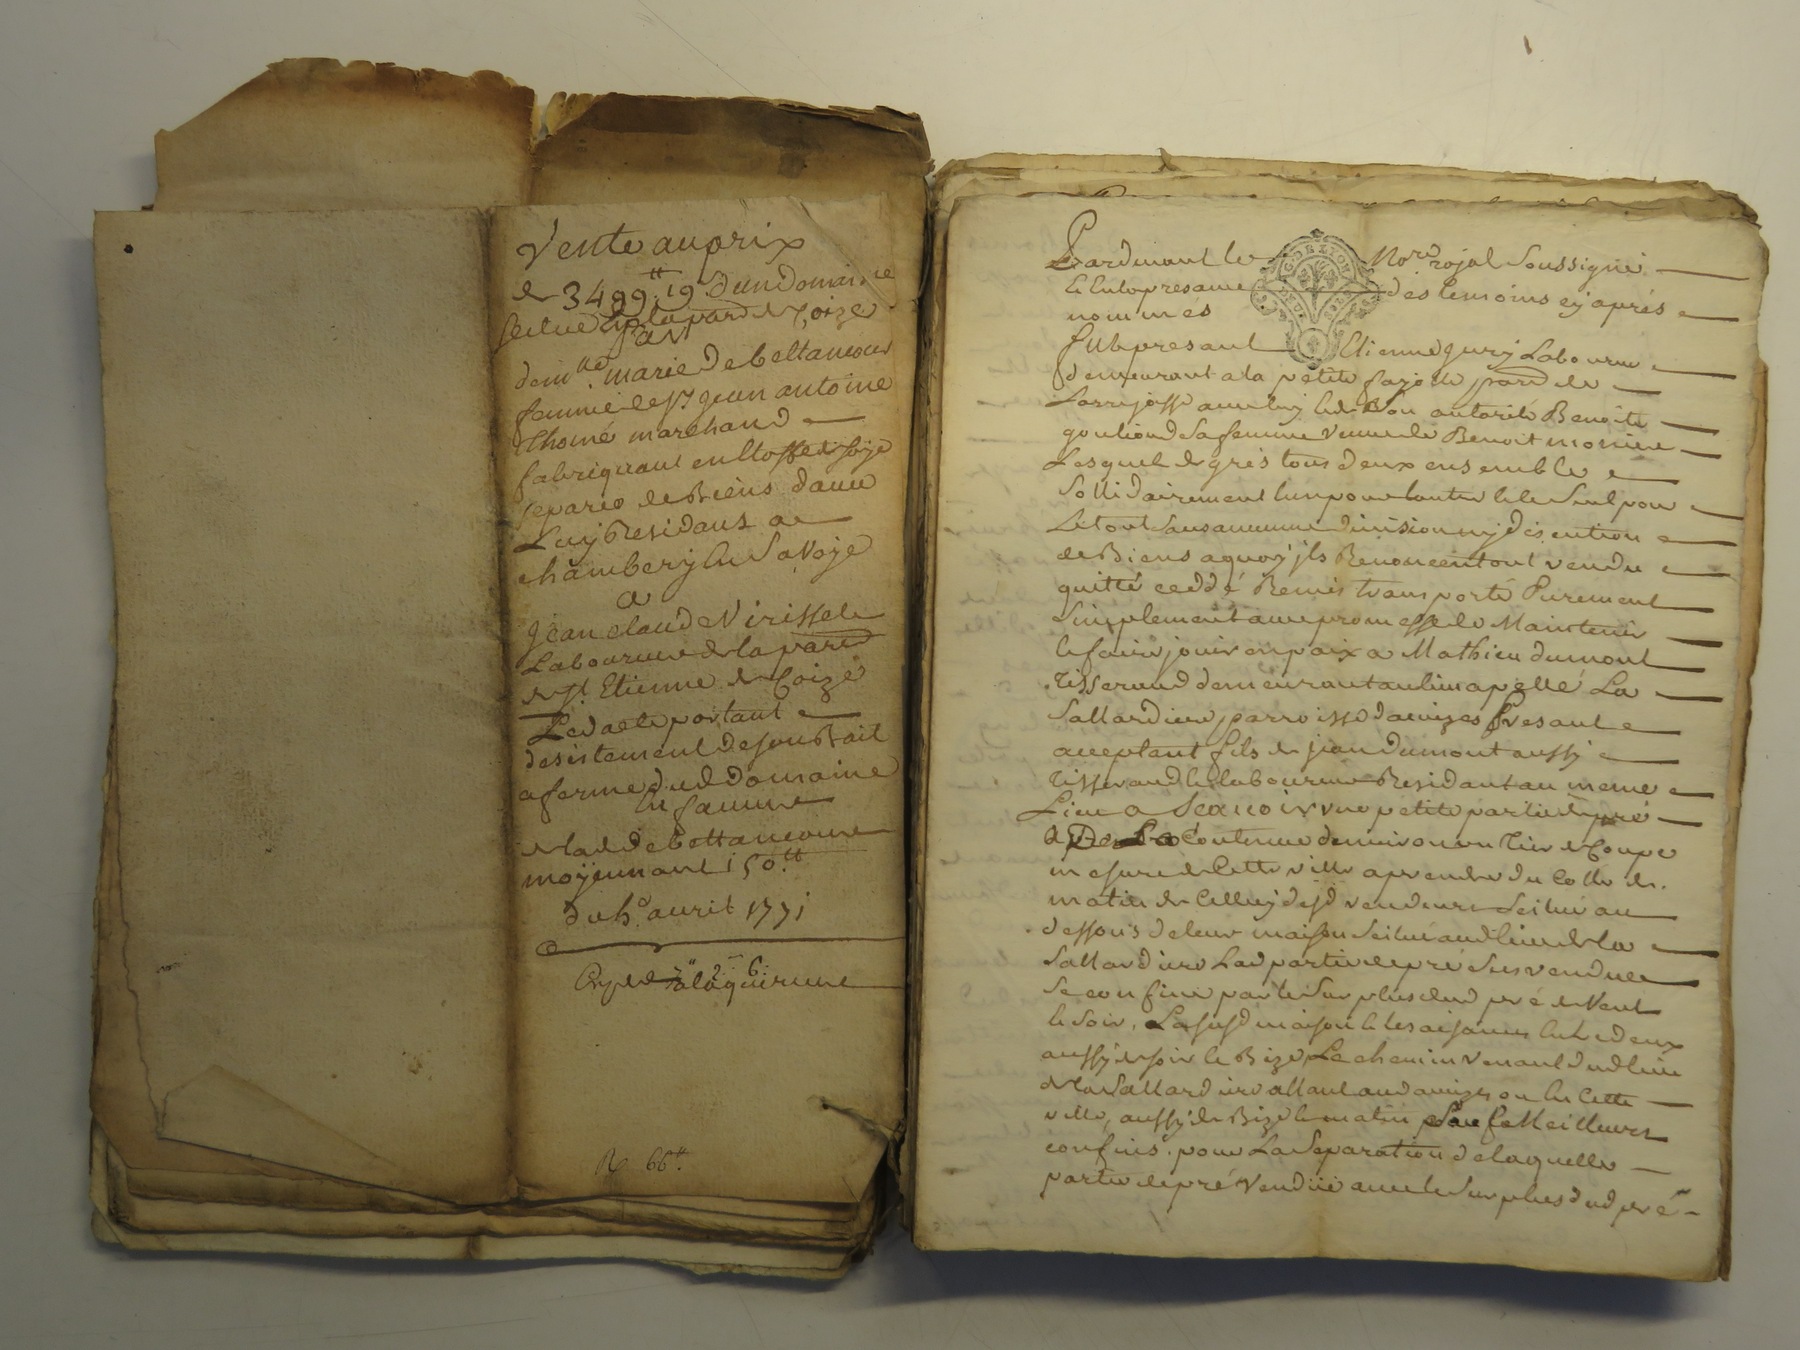 Vente au prix
de 3499 ₶ 19 s d'un Domaine
scitué en la parr. de Coize
par
dem.lle marie de bettancour
femme de Sr jean antoine
thomé marchand
fabriquant en Etoffe de soye
separée de Biens d'avec
Luy Residant a
chambery en Savoye
a
jean claude Virissel
Laboureur de la parr.
de St. Etienne de Coize
Led acte portant
desistement de son Bail
a ferme dud Domaine
en faveur
de lad de bettancour
moÿennant 150 ₶
du avril 1771
R 66 ₶
Pardevant le Nore. rojal Soussigné
et en presance des temoins cy après
nommés
fut presant Etienne jury Laboureur
demeurant a la petite parr. de
Larrajasse avec luy et de son autorité Benoite
goulioud sa femme veuve de Benoit
Lesquel de grés tous deux ensemble
Sollidairement l'un pour l'autre et le Seul pour
Le tout sans aucunne division ny discution
de Biens a quoy jls Renoncent ont vendu
quitté ceddé Remis transporté Purement
Simplement avec promesse de Maintenir
et faire jouir en paix a Mathieu dumont
Tisserand demeurant au lieu apellé La
Sallardiere parroisse d'aveizes Presant
acceptant fils de jean dumont aussy
Tisserand et laboureur Residant au meme
Lieu a Scavoir une petite partie de pré
De La Contenue d'environ un Tier de Coupe
mesure de Cette ville a prendre du Cotté de
matin de Celluy desd vendeurs Scitué au
dessous de leur maison Scitué aud lieu de la
Sallardiere Lad partie de pré Sus vendue
Se confine par le Surplus dud pré de Vent
et Soir, La susd maison et les aisances
aussy de soir et Bize, Le chemin venant dud lieu
de la Sallardiere allant aud aveizes ou en Cette
ville, aussy de Bize et matin Sauf Meilleurs
confins. pour La Separation de laquelle
partie de pré Vendüe avec le Surplus dud pré